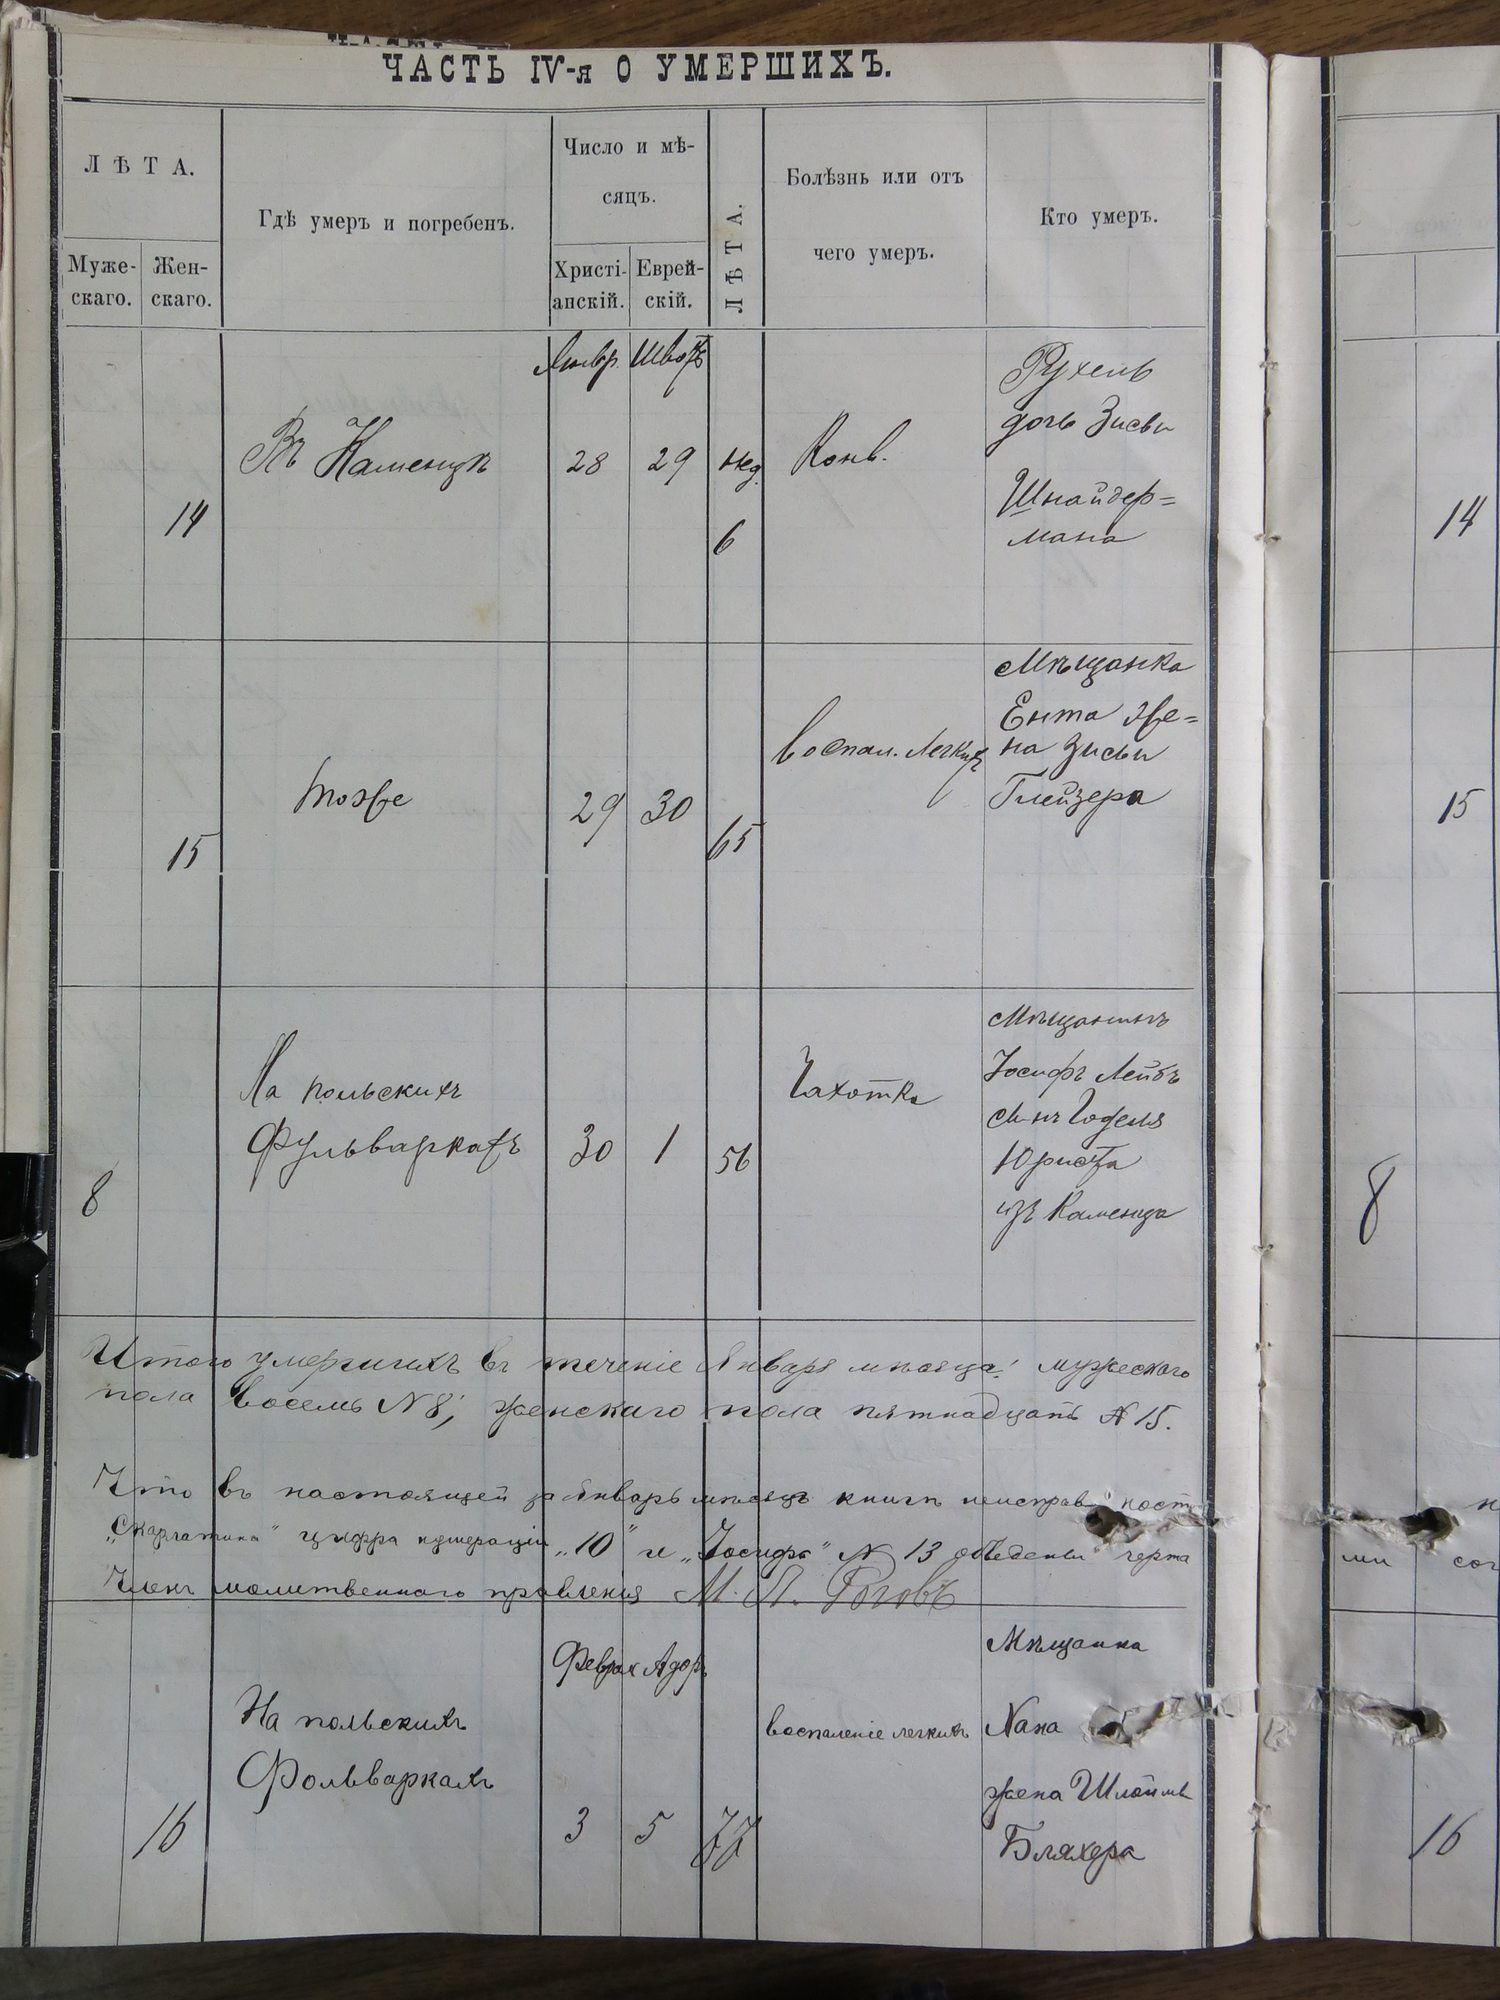 ЧАСТЬ IV-я О УМЕРШИХЪ.
ЛѢТА.
Муже-
скаго.
Жен-
скаго.
Гдѣ умеръ и погребенъ.
Число и мѣ-
сяцъ.
Христі-
анскій.
Еврей-
скій.
ЛѢТА.
Болѣзнь или отъ
чего умеръ.
Кто умеръ.
Январ. Шватъ
14
Въ Каменцѣ
28
29
нед.
6
Конв.
Рухель
дочь Зиси
Шнайдер=
мана
14
15
тоже
29
30
65
воспал. легкихъ
Мѣщанка
Ента же=
на Зиси
Глейзера
15
8
На польскихъ
Фульваркахъ
30
1
56
Чахотка
Мѣщанинъ
Іосифъ Лейбъ
с-нъ Годеля
Юриста
изъ Каменца
8
Итого умершихъ въ теченіе Января мѣсяца: мужескаго
пола восемь N 8; женскаго пола пятнадцать N 15.
Что въ настоящей за Январь мѣсяцъ книгѣ неисправ ност
„Скарлатина" цифра нумераціи „10" и „Іосифъ" N 13 объедены черта
Членъ молитвеннаго правленія М. Л. Роговъ
ми сог
Феврал Адаръ
16
На польскихъ
Фольваркахъ
3
5
77
воспаленіе легкихъ
Мѣщанка
Хана
жена Шлоймы
Бляхера
16